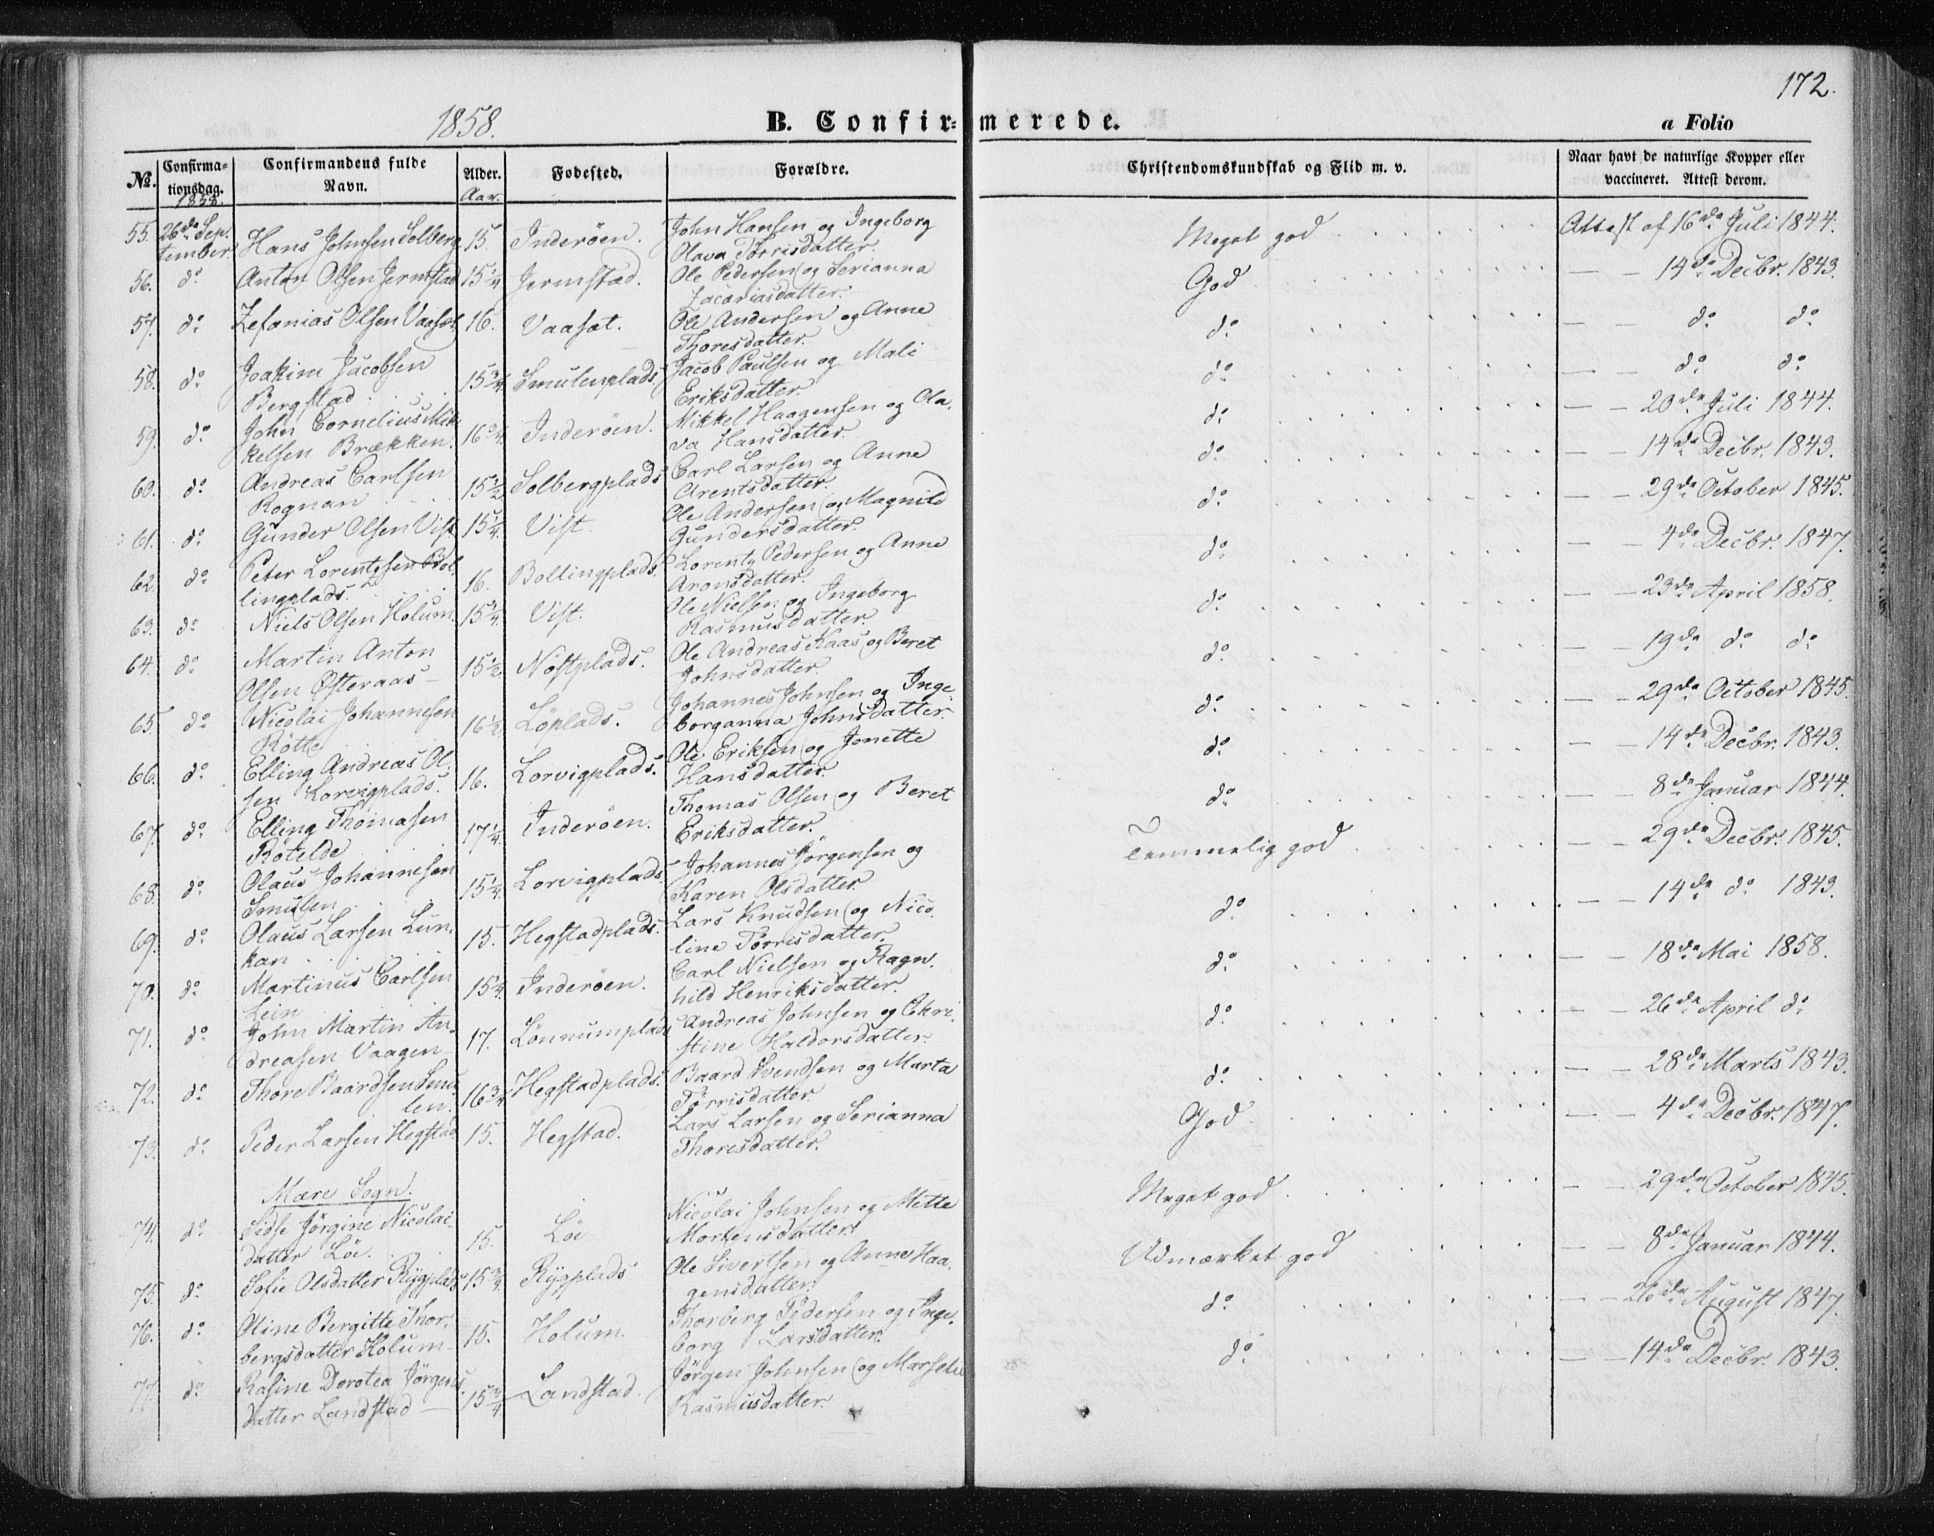 172.
1858.
B. Confirmerede.
a Folio
No.
Confirmationsdag.
1858.
Confirmandens fulde Navn.
Alder.
Aar.
Fødested.
Forældre.
Christendomskundskab og Flid m. v.
Naar havt de naturlige Kopper eller vaccineret. Attest derom.
55. 26de September Hans Johnsen Solberg 15. Inderöen. John Hansen og Ingeborg Olava Törrisdatter. Meget god Attest af 16de Juli 1844.
56. do Anton Olsen Jermstad 15 1/4 Jermstad. Ole Pedersen og Serianna Zacariasdatter. God — — 14de Decbr. 1843.
57. do Zefanias Olsen Vaasæt 16. Vaasæt. Ole Andersen og Anne Thoresdatter. do — — do do
58. do Joakim Jacobsen Bergstad 15 3/4 Smulenplads. Jacob Paulsen og Mali Eriksdatter. do — — do do
59. do John Cornelius Mikkelsen Brækken. 16 3/4 Inderöen. Mikkel Haagensen og Olava Hansdatter. do — — 20de Juli 1844.
60. do Andreas Carlsen Rognan 15 1/2 Solbergplads Carl Larsen og Anne Arentsdatter. do — — 14de Decbr. 1843.
61. do Gunder Olsen Vist 15 1/4 Vist Ole Andersen og Magnild Gundersdatter. do — — 29de October 1845.
62. do Peter Lorentzsen Bollingplads. 16. Bollingplads. Lorentz Pedersen og Anne Aronsdatter. do — — 4de Decbr. 1847.
63. do Niels Olsen Holum. 15 3/4 Vist. Ole Nielsen og Ingeborg Rasmusdatter do — — 23de April 1858.
64. do Martin Anton Olsen Østeraas 15 1/2 Nöstplads. Ole Andreas Kaas og Beret Johnsdatter. do — — 19de do do
65. do Nicolai Johannesen Rötte 16 1/2 Löplads. Johannes Johnsen og Ingeborganna Johnsdatter. do — — 29de October 1845.
66. do Elling Andreas Olsen Lorvigplads. 16. Lorvigplads. Ole Eriksen og Jonette Hansdatter. do — — 14de Decbr. 1843.
67. do Elling Thomasen Rötelde 17 1/4 Inderöen. Thomas Olsen og Beret Eriksdatter. do — — 8de Januar 1844.
68. do Olaus Johannesen Smulen 15 1/4 Lorvigplads. Johannes Jörgensen og Karen Olsdatter Temmelig god — — 29de Decbr. 1845.
69. do Olaus Larsen Lunkan 15. Hegstadplads. Lars Knudsen og Nicoline Törrisdatter. do — — 14de do 1843.
70. do Martinus Carlsen Lein 15 1/4 Inderöen. Carl Nielsen og Ragnhild Henriksdatter. do — — 18de Mai 1858.
71. do John Martin Andreasen Vaagen 17. Lönnumplads Andreas Johnsen og Christine Haldorsdatter. do — — 26de April do
72. do Thore Baardsen Smulen. 16 3/4 Hegstadplads. Baard Svendsen og Marta Törrisdatter do — — 28de Marts 1843.
73. do Peder Larsen Hegstad 15. Hegstad. Lars Larsen og Serianna Thoresdatter. God — — 4de Decbr. 1847.
Mære Sogn.
74. do Sidse Jörgine Nicolaidatter Löe. 15. Löe Nicolai Johnsen og Mette Mortensdatter. Meget god — — 29de October 1845.
75. do Sofie Olsdatter Rygplads 15 3/4 Rygplads Ole Sivertsen og Anne Haagensdatter. Udmærket god — — 8de Januar 1844.
76. do Oline Bergitte Thorbergsdatter Holum 15. Holum. Thorberg Pedersen og Ingeborg Larsdatter. do — — 26de August 1847.
77. do Rasine Dorotea Jörgensdatter Landstad 15 3/4 Landstad. Jörgen Johnsen og Marselie Rasmusdatter. do — — 14de Decbr. 1843.